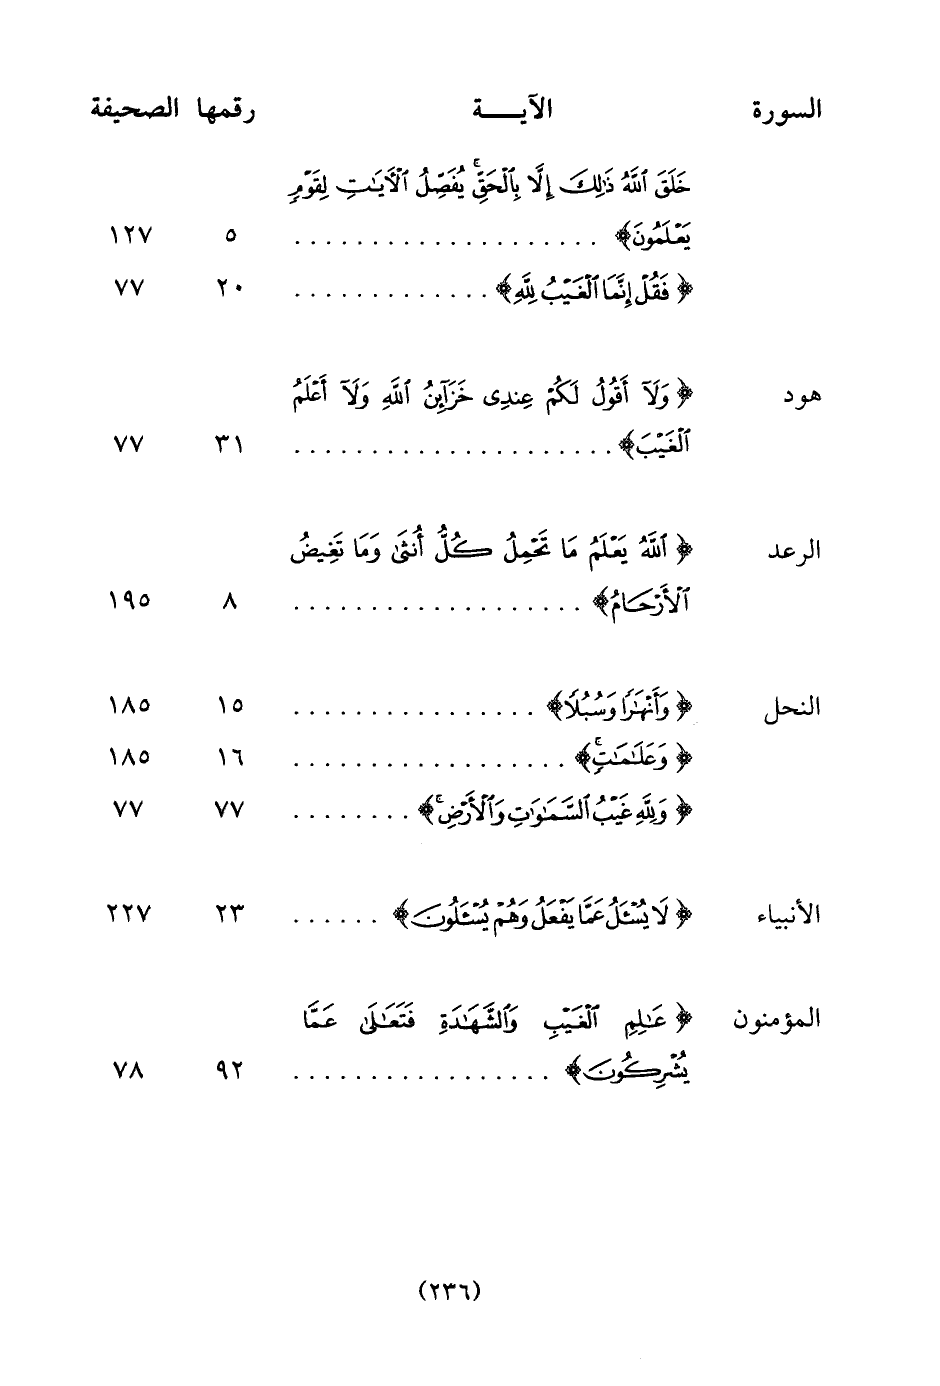 السورة الآيـــة رقمها الصحيفة
خَلَقَ ٱللَّهُ ذَٰلِكَ إِلَّا بِٱلْحَقِّ ۚ يُفَصِّلُ ٱلْآيَٰتِ لِقَوْمٍ
يَعْلَمُونَ﴾ . . . . . . . . . . . . . . . . . . . . ٥ ١٢٧
﴿ فَقُلْ إِنَّمَا ٱلْغَيْبُ لِلَّهِ﴾ . . . . . . . . . . . . . ٢٠ ٧٧
هود ﴿ وَلَآ أَقُولُ لَكُمْ عِندِى خَزَآئِنُ ٱللَّهِ وَلَآ أَعْلَمُ
ٱلْغَيْبَ﴾ . . . . . . . . . . . . . . . . . . . . . ٣١ ٧٧
الرعد ﴿ ٱللَّهُ يَعْلَمُ مَا تَحْمِلُ كُلُّ أُنثَىٰ وَمَا تَغِيضُ
ٱلْأَرْحَامُ﴾ . . . . . . . . . . . . . . . . . . . ٨ ١٩٥
النحل ﴿ وَأَنْهَٰرًا وَسُبُلًا﴾ . . . . . . . . . . . . . . . . ١٥ ١٨٥
﴿ وَعَلَٰمَٰتٍ ۚ﴾ . . . . . . . . . . . . . . . . . . ١٦ ١٨٥
﴿ وَلِلَّهِ غَيْبُ ٱلسَّمَٰوَٰتِ وَٱلْأَرْضِ ۚ﴾ . . . . . . . . ٧٧ ٧٧
الأنبياء ﴿ لَا يُسْـَٔلُ عَمَّا يَفْعَلُ وَهُمْ يُسْـَٔلُونَ﴾ . . . . . . ٢٣ ٢٢٧
المؤمنون ﴿ عَٰلِمِ ٱلْغَيْبِ وَٱلشَّهَٰدَةِ فَتَعَٰلَىٰ عَمَّا
يُشْرِكُونَ﴾ . . . . . . . . . . . . . . . . . ٩٢ ٧٨
(٢٣٦)